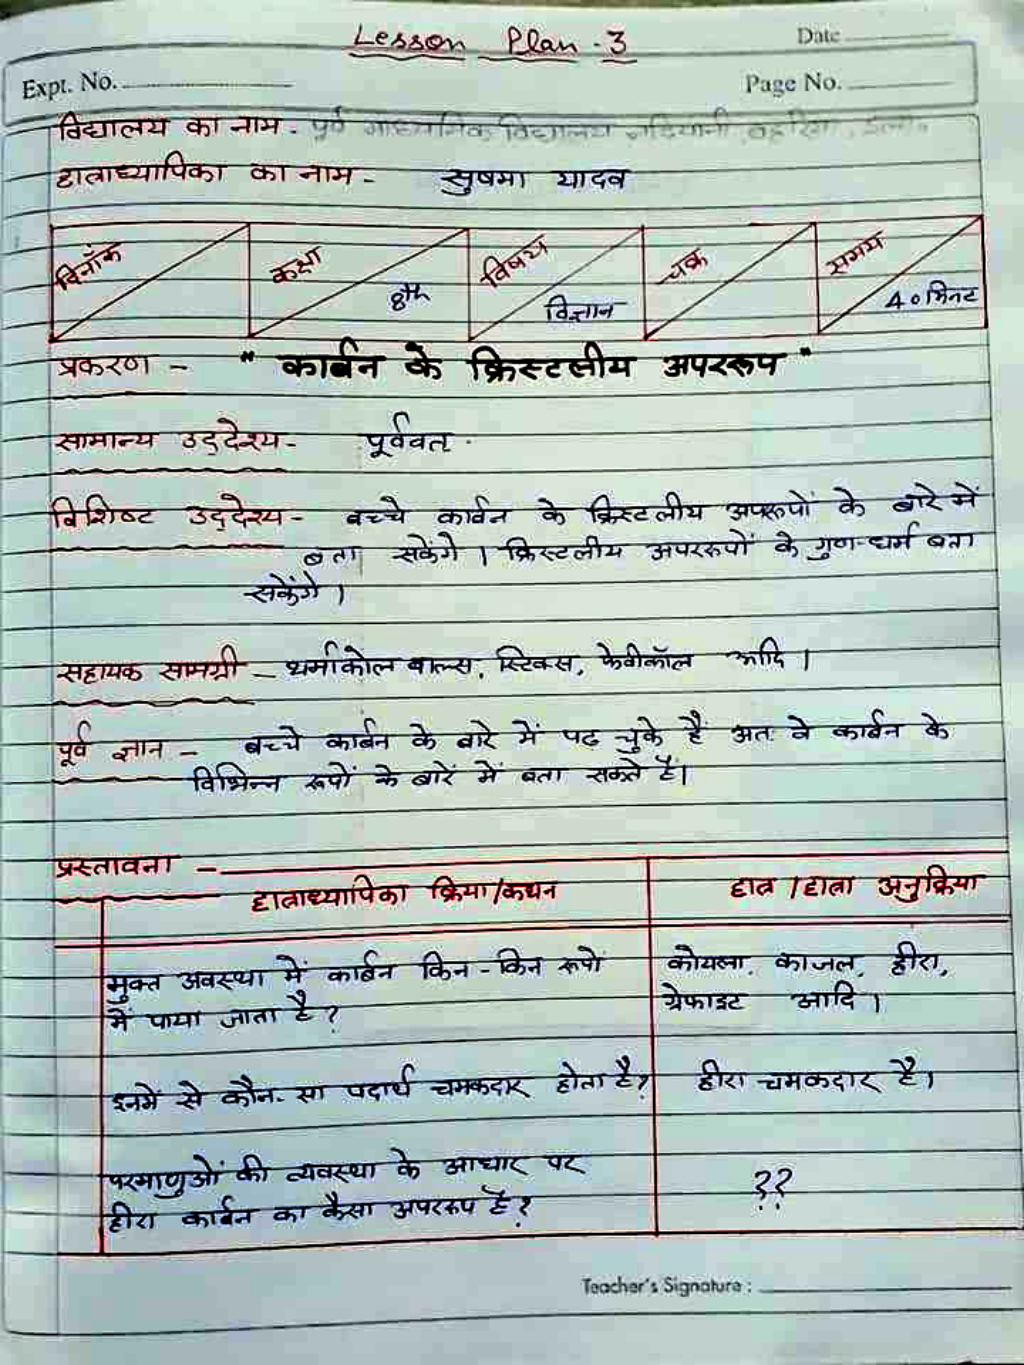 Lesson Plan - 3
Date
Expt. No.
Page No.
विद्यालय का नाम - पूर्व माध्यमिक विद्यालय
छात्राध्यापिका का नाम - सुषमा यादव
दिनाँक कक्षा 8th विषय विज्ञान चक्र समय 40 मिनट
प्रकरण - " कार्बन के क्रिस्टलीय अपररूप "
सामान्य उद्देश्य - पूर्ववत् .
विशिष्ट उद्देश्य - बच्चे कार्बन के क्रिस्टलीय अपरूपों के बारे में
बता सकेंगे । क्रिस्टलीय अपररूपों के गुण-धर्म बता
सकेंगे ।
सहायक सामग्री - थर्माकोल बाल्स, स्टिक्स, फेवीकॉल आदि ।
पूर्व ज्ञान - बच्चे कार्बन के बारे में पढ़ चुके हैं अतः वे कार्बन के
विभिन्न रूपों के बारें में बता सकते हैं।
प्रस्तावना -
छात्राध्यापिका क्रिया/कथन छात्र/छात्रा अनुक्रिया
मुक्त अवस्था में कार्बन किन-किन रूपों कोयला, काजल, हीरा,
में पाया जाता है? ग्रेफाइट आदि ।
इनमें से कौन-सा पदार्थ चमकदार होता है? हीरा चमकदार है।
परमाणुओं की व्यवस्था के आधार पर ??
हीरा कार्बन का कैसा अपररूप है?
Teacher's Signature :